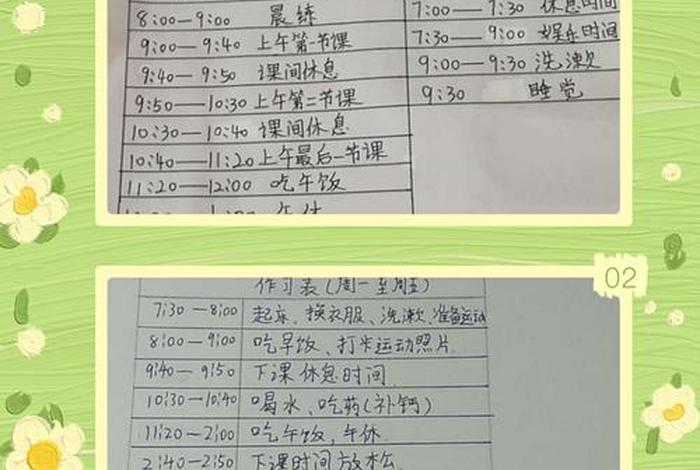 8:00—9:00 晨练
9:00—9:40 上午第一节课
9:40—9:50 课间休息
9:50—10:30 上午第二节课
10:30—10:40 课间休息
10:40—11:20 上午最后一节课
11:20—12:00 吃午饭
午休
7:00—7:30 休息时间
7:30—9:00 娱乐时间
9:00—9:30 洗漱
9:30 睡觉
02
作习表(周一至周五)
7:30—8:00 起床、换衣服、洗漱、准备运动
8:00—9:00 吃早饭、打卡运动照片
9:40—9:50 下课休息时间
10:30—10:40 喝水、吃药(补钙)
11:20—2:00 吃午饭,午休
2:40—2:50 下课时间放松